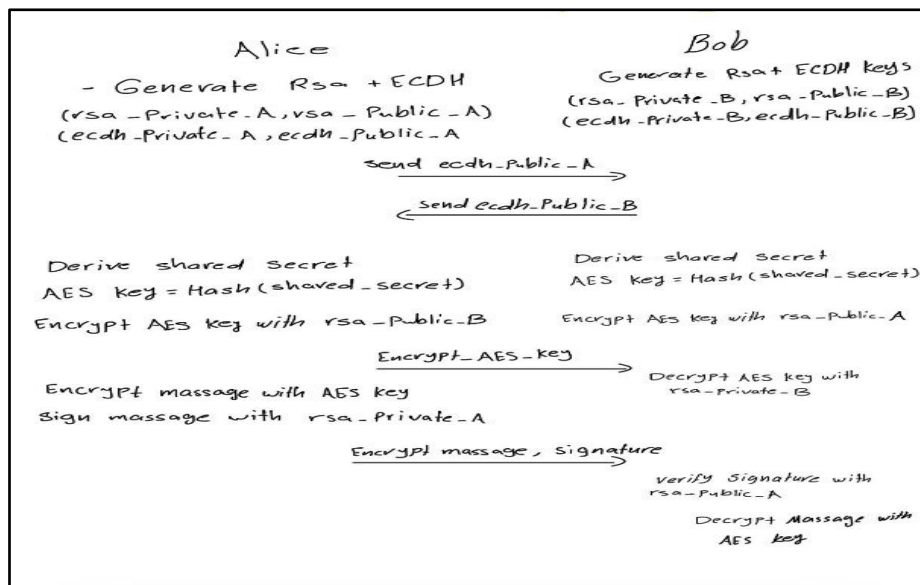 Alice
- Generate Rsa + ECDH
(rsa_Private_A, rsa_Public_A)
(ecdh_Private_A, ecdh_Public_A
Bob
Generate Rsa + ECDH keys
(rsa_Private_B, rsa_Public_B)
(ecdh_Private_B, ecdh_Public_B)
send ecdh_Public_A
send ecdh_Public_B
Derive shared secret
AES key = Hash(shared_secret)
Encrypt AES key with rsa_Public_B
Derive shared secret
AES key = Hash(shared_secret)
Encrypt AES key with rsa_Public_A
Encrypt_AES_key
Decrypt AES key with
rsa_Private_B
Encrypt massage with AES key
Sign massage with rsa_Private_A
Encrypt massage, signature
verify signature with
rsa_Public_A
Decrypt Massage with
AES key